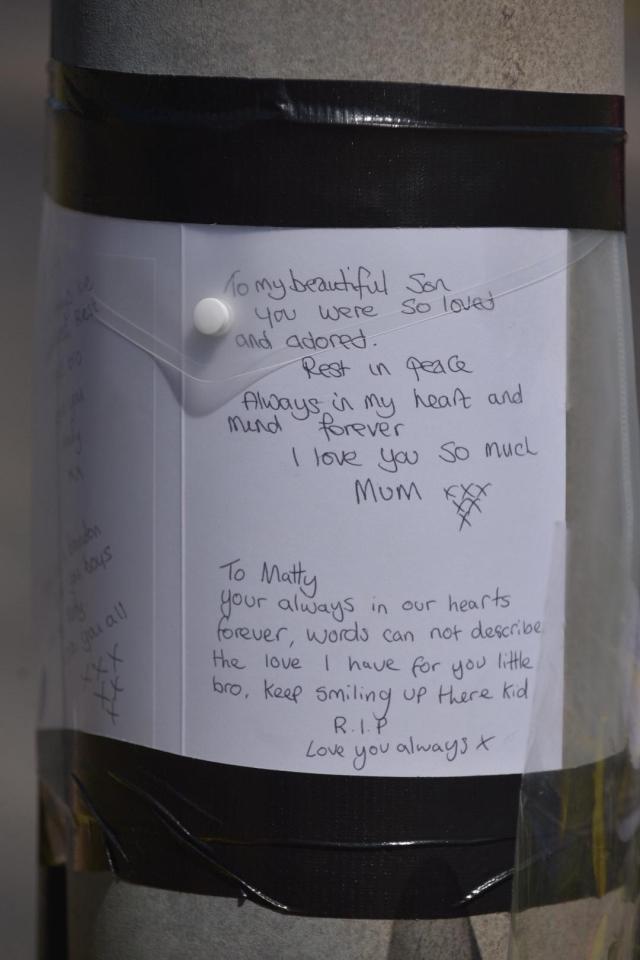 To my beautiful Son
you were so loved
and adored.
Rest in peace
Always in my heart and
mind forever
I love you so much
Mum xxx
xx
x
To Matty
your always in our hearts
forever, words can not describe
the love I have for you little
bro, keep smiling up there kid
R.I.P
Love you always x
boys
you all
xxx
xx
x